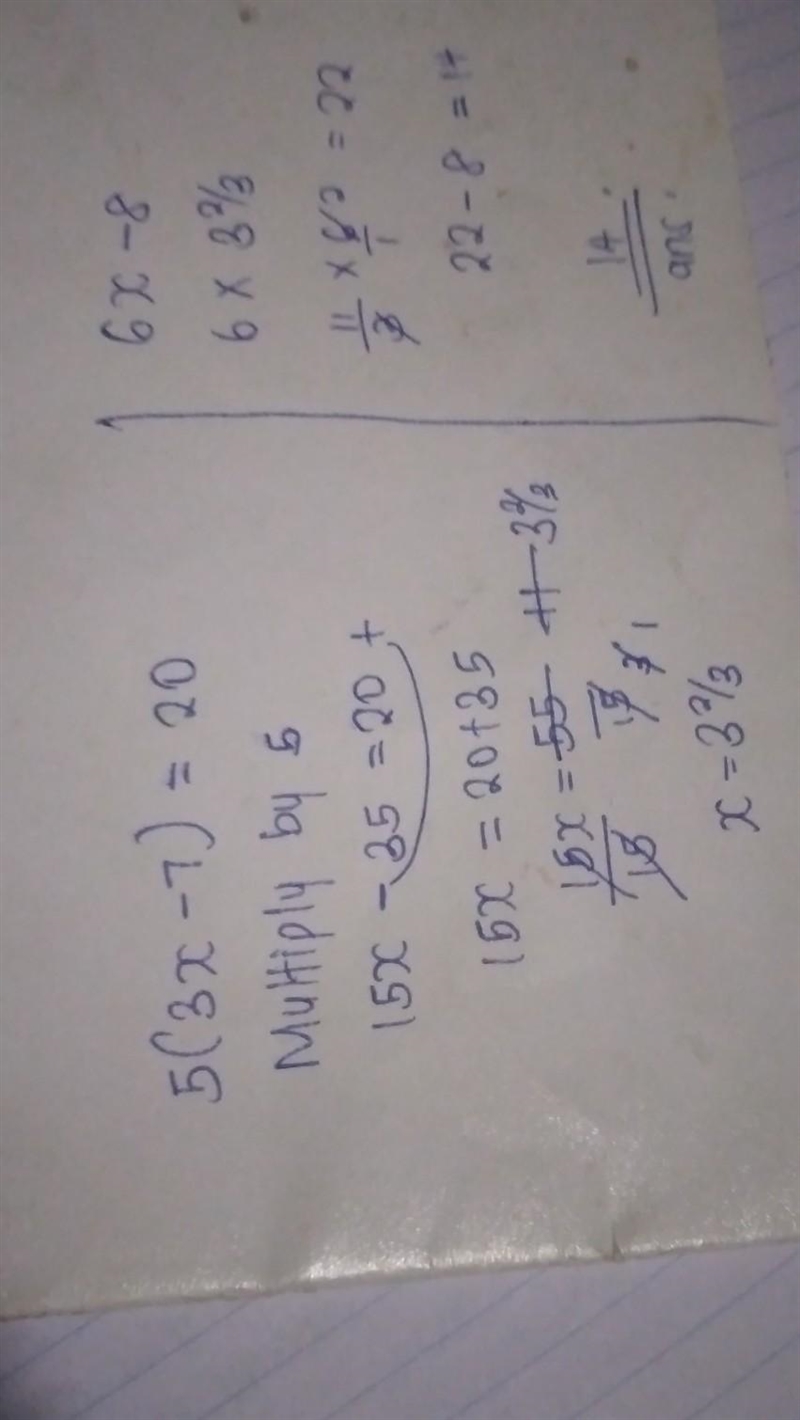 5(3x - 7) = 20
Multiply by 5
15x - 35 = 20 +
15x = 20+35
15x = 55 11 3 2/3
15 15 3 1
x = 3 2/3
6x - 8
6 x 3 2/3
11/3 x 6 2/1 = 22
22 - 8 = 14
14
ans.